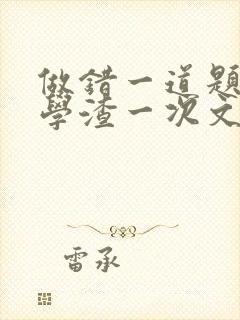 做錯一道題
學渣一次文
雷承